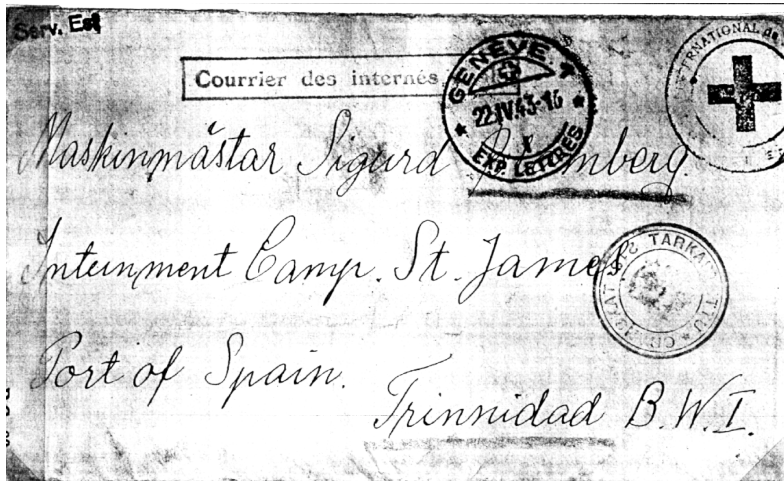 Serv. Est
Courrier des internés
GENÈVE
22.IV.43-15
EXP. LETTRES
INTERNATIONAL de
Maskinmästar Sigurd
Internment Camp. St. James.
TARKA
Port of Spain.
Trinnidad B.W.I.